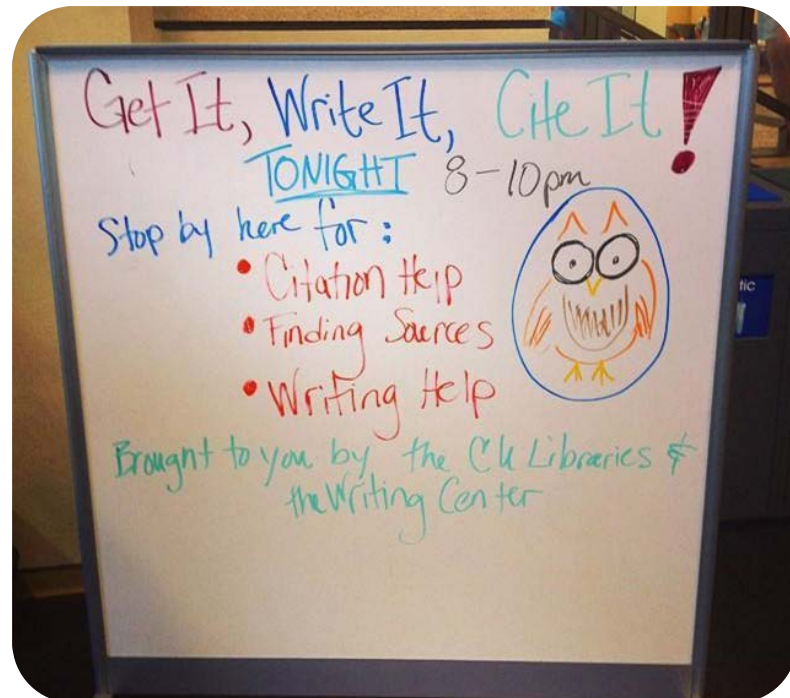 Get It, Write It, Cite It!
TONIGHT 8-10pm
Stop by here for:
• Citation Help
• Finding Sources
• Writing Help
Brought to you by the CU Libraries &
the Writing Center
tic